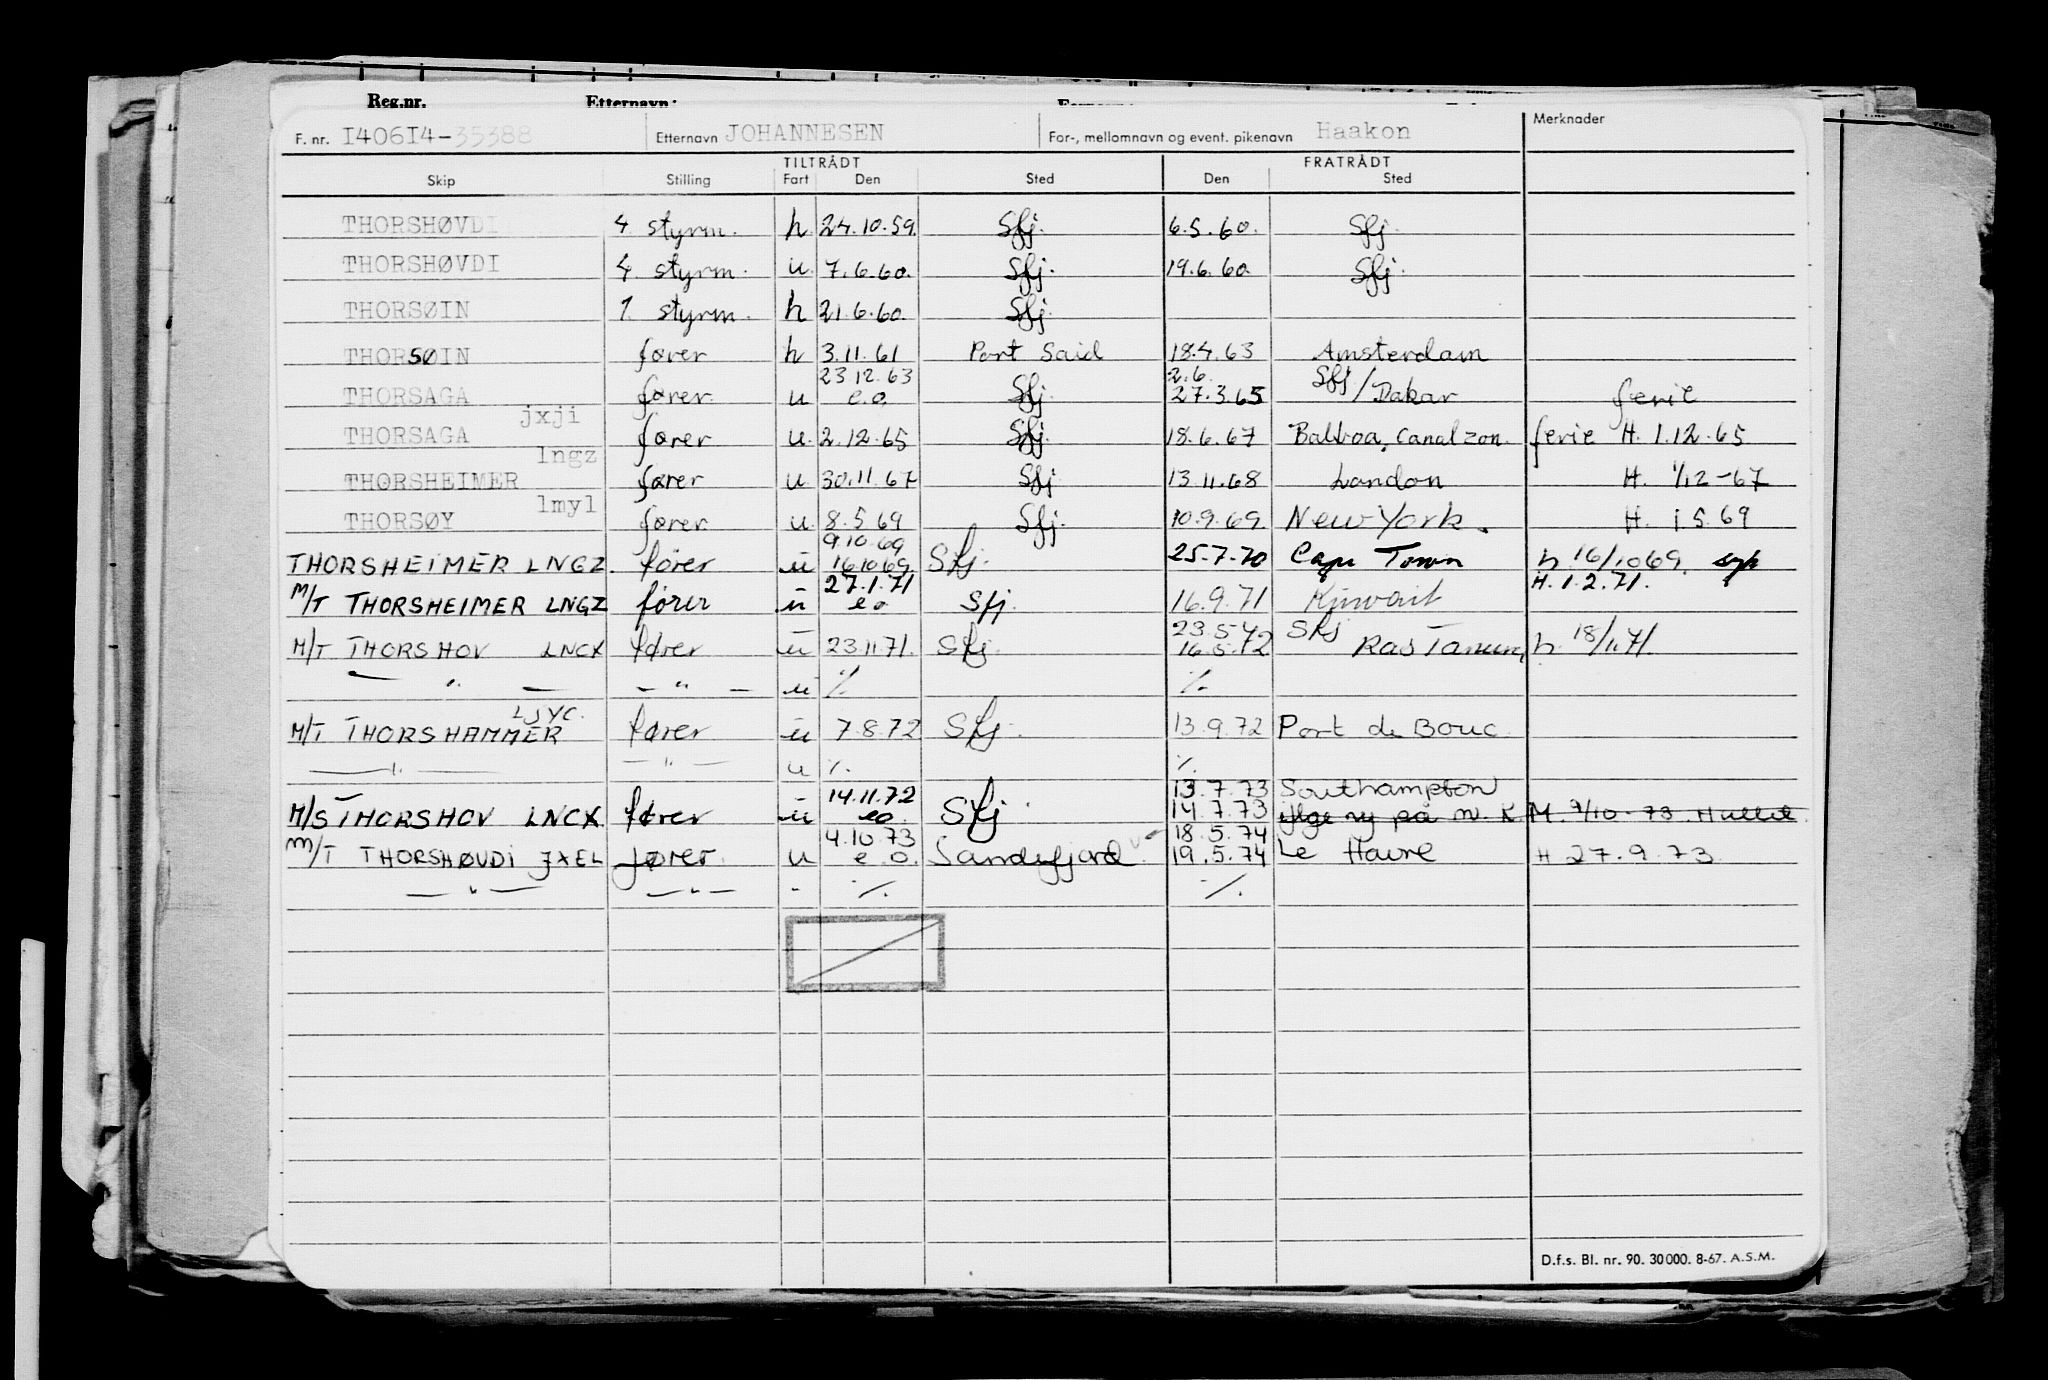 Reg.nr. Etternavn:
F. nr. I406I4-35388 Etternavn JOHANNESEN For-, mellomnavn og event. pikenavn Haakon Merknader
TILTRÅDT FRATRÅDT
Skip Stilling Fart Den Sted Den Sted
THORSHØVDI 4 styrm. h 24.10.59. Sfj. 6.5.60. Sfj.
THORSHØVDI 4 styrm. u 7.6.60. Sfj. 19.6.60 Sfj.
THORSØIN 1. styrm. h 21.6.60. Sfj.
THORSØIN fører h 3.11.61 Port Said 18.4.63 Amsterdam
23.12.63 2.6. Sfj/
THORSAGA fører u e.o. Sfj. 27.3.65 Dakar ferie
jxji
THORSAGA fører u. 2.12.65 Sfj. 18.6.67 Balboa, Canalzon. ferie H. 1.12.65
lngz
THORSHEIMER fører u 30.11.67 Sfj 13.11.68 London H. 1/12-67
lmyl
THORSØY fører u. 8.5.69 Sfj. 10.9.69. New York. H. 1.5.69
9.10.69
THORSHEIMER LNGZ. fører u 16.10.69. Sfj. 25.7.70 Cape Town h 16/10 69. syk
27.1.71 H.1.2.71.
M/T THORSHEIMER LNGZ fører u e.o Sfj. 16.9.71 Kuwait
23.5.72 Sfj
M/T THORSHOV LNCX fører u 23.11.71. Sfj. 16.5.72 Ras Tanura h 18/11.71.
— " — — " — u % %
LJYC.
M/T THORSHAMMER fører u 7.8.72 Sfj. 13.9.72 Port de Bouc
— " — — " — u % %
14.11.72 13.7.73 Southampton
M/S THORSHOV LNCX fører u eo. Sfj 14.7.73 ifge ny på m. K M. 9/10-73. Hullet.
4.10.73 18.5.74
M/T THORSHØVDI JXEL fører u e.o. Sandefjord 19.5.74 Le Havre H 27.9.73
— " — — " — - % %
D.f.s. Bl. nr. 90. 30000. 8-67. A.S.M.